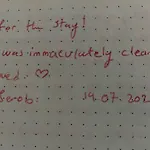 for the stay!
was immaculately clea
ved. ♡
19.07.202